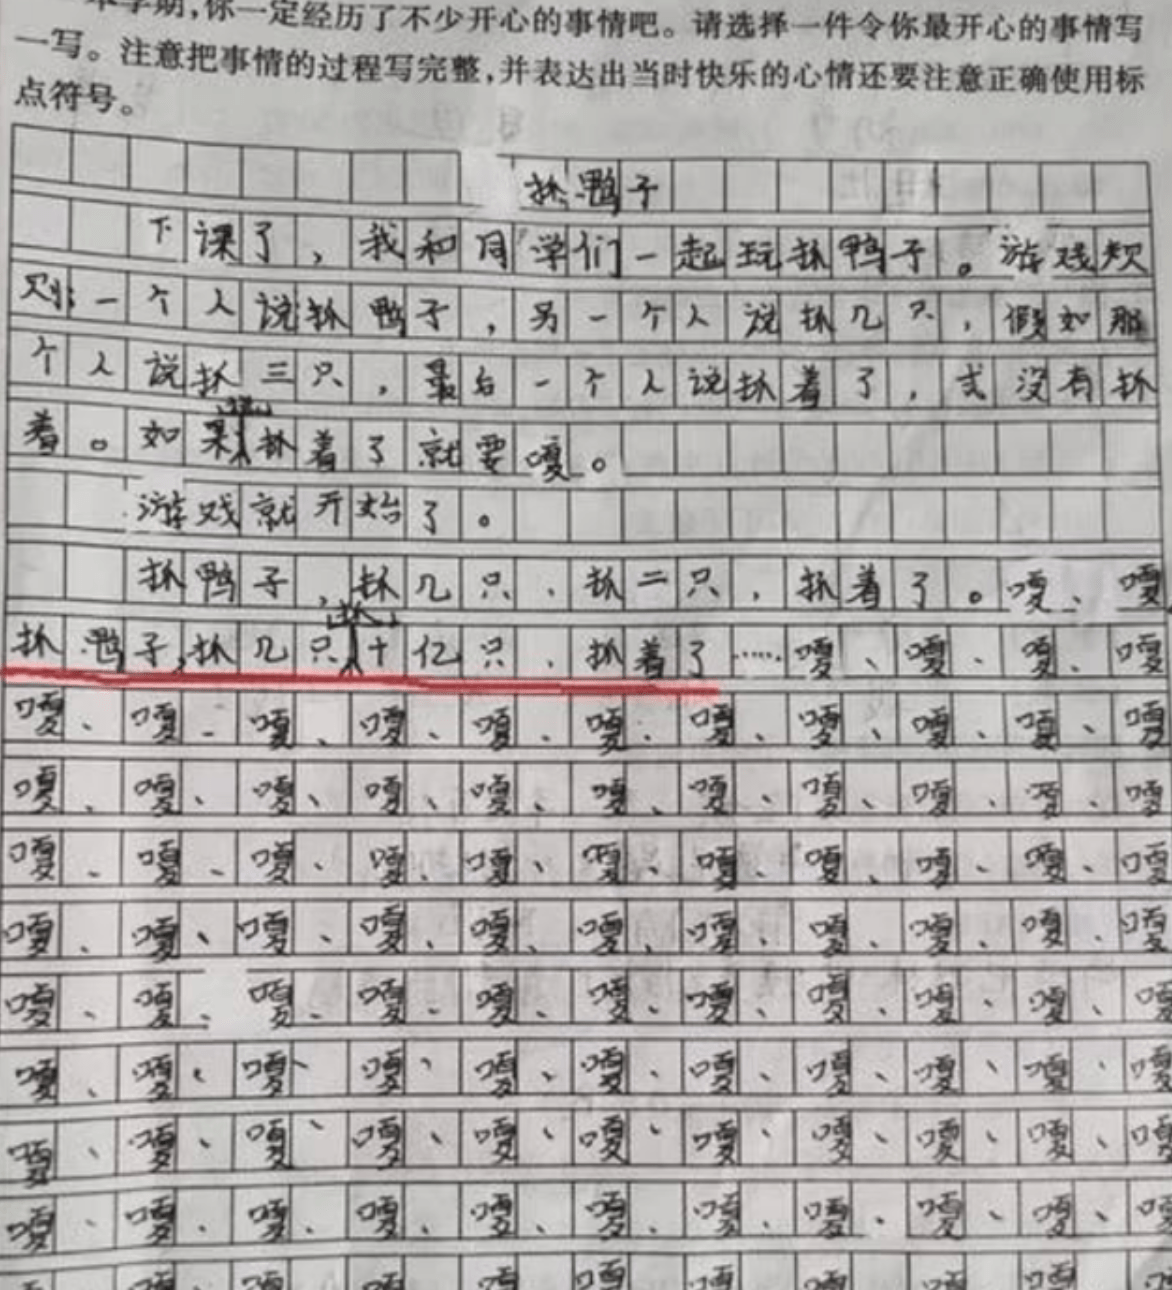 本学期,你一定经历了不少开心的事情吧。请选择一件令你最开心的事情写
一写。注意把事情的过程写完整,并表达出当时快乐的心情还要注意正确使用标
点符号。
抓鸭子
下课了，我和同学们一起玩抓鸭子。游戏规
则:一个人说抓鸭子，另一个人说抓几只，假如那
个人说抓三只，最后一个人说抓着了，或没有抓
着。如果抓着了就要嘎。
游戏就开始了。
抓鸭子,抓几只、抓二只，抓着了。嘎、嘎
抓鸭子,抓几只抓十亿只、抓着了……嘎、嘎、嘎、嘎
嘎、嘎、嘎、嘎、嘎、嘎、嘎、嘎、嘎、嘎、嘎
嘎、嘎、嘎、嘎、嘎、嘎、嘎、嘎、嘎、嘎、嘎
嘎、嘎、嘎、嘎、嘎、嘎、嘎、嘎、嘎、嘎、嘎
嘎、嘎、嘎、嘎、嘎、嘎、嘎、嘎、嘎、嘎、嘎
嘎、嘎、嘎、嘎、嘎、嘎、嘎、嘎、嘎、嘎、嘎
嘎、嘎、嘎、嘎、嘎、嘎、嘎、嘎、嘎、嘎、嘎
嘎、嘎、嘎、嘎、嘎、嘎、嘎、嘎、嘎、嘎、嘎
嘎、嘎、嘎、嘎、嘎、嘎、嘎、嘎、嘎、嘎、嘎
嘎、嘎、嘎、嘎、嘎、嘎、嘎、嘎、嘎、嘎、嘎